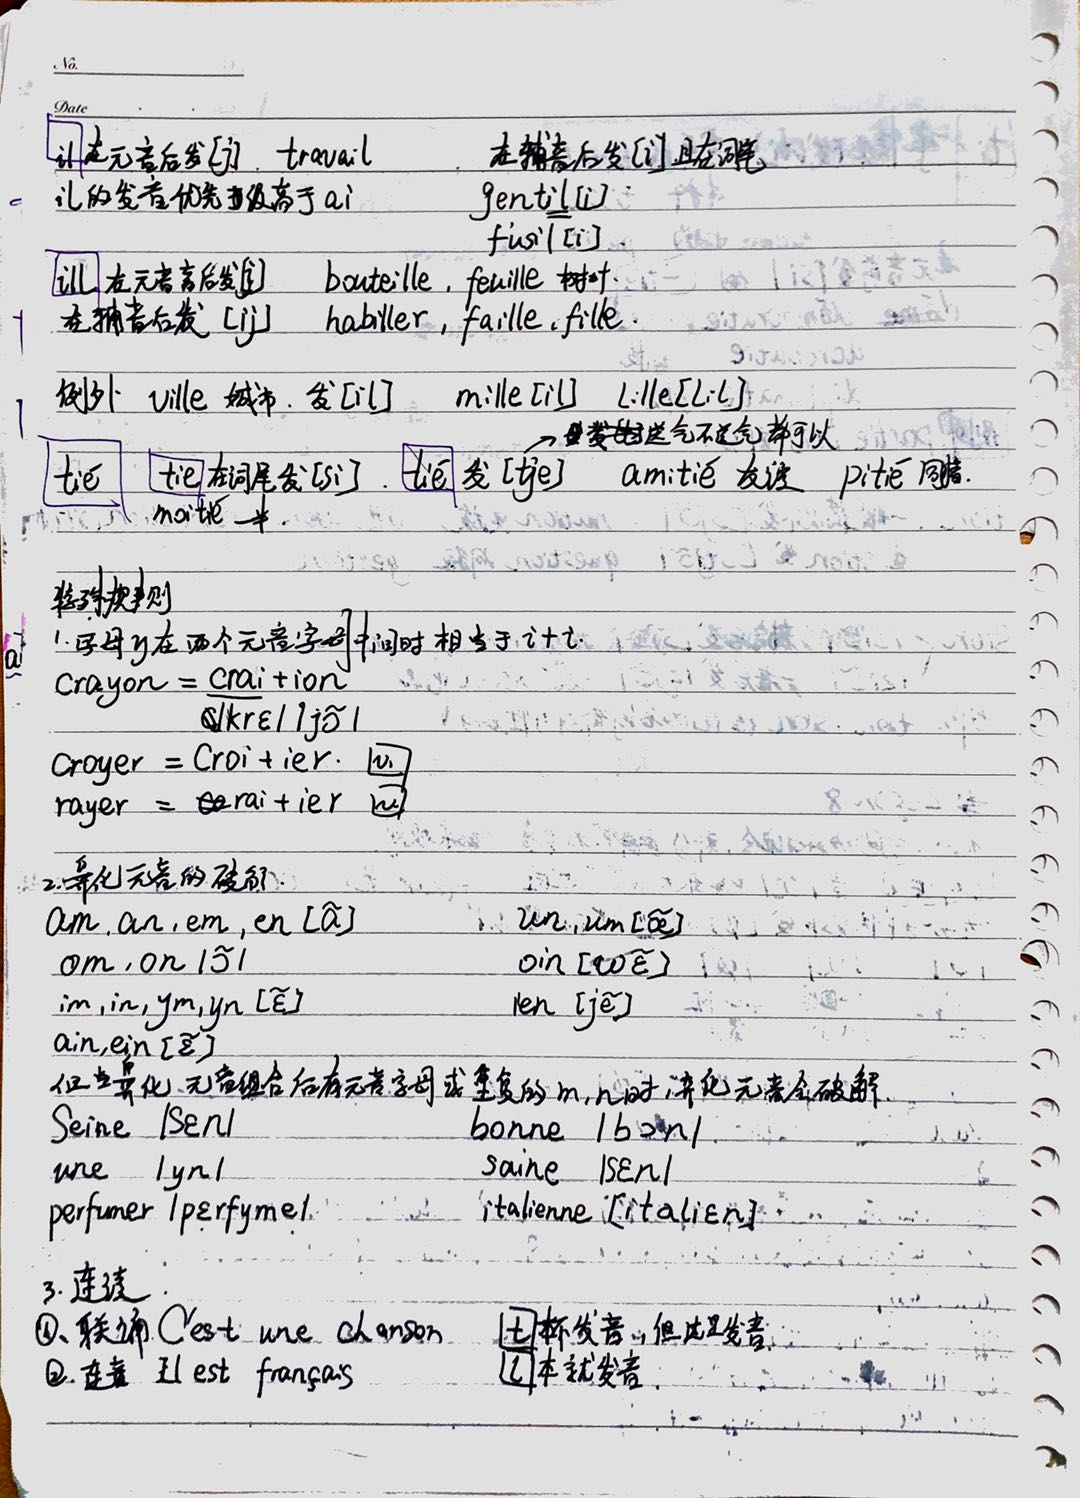 No.
Date
il 在元音后发[j]. travail 在辅音后发[i]且在词尾
il的发音优先级高于ai gentil[i]
fusil[i].
ill 在元音后发[j] bouteille, feuille 树叶.
在辅音后发 [ij] habiller, faille, fille.
例外 ville 城市. 发[il] mille[il] Lille[Lil]
→ 送气不送气都可以
tié tie 在词尾发[si]. tié 发[tje] amitié 友谊 pitié 同情.
moitié 一半.
特殊规则
1. 字母y在两个元音字母中间时相当于i+i.
ai
crayon = crai+ion
|krɛ| |jɔ̃|
croyer = Croi+ier. vi
rayer = rai+ier
2. 鼻化元音的破解.
am, an, em, en [ã] un, um [œ̃]
om, on |ɔ̃| oin [wɛ̃]
im, in, ym, yn [ɛ̃] ien [jɛ̃]
ain, ein [ɛ̃]
但当鼻化元音组合后有元音字母或重复的m,n时,鼻化元音会破解.
Seine |sɛn| bonne |bɔn|.
une |yn| saine |sɛn|
perfumer |pɛrfyme| italienne [italiɛn]
3. 连读.
①、联诵 C'est une chanson t 不发音,但这里发音
②. 连音 Il est français l 本就发音.